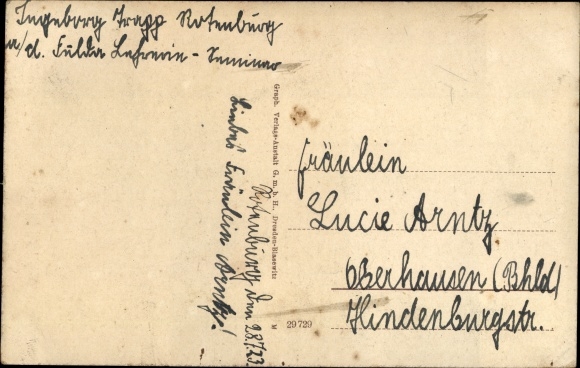 Ingeborg Trapp Rotenburg
a/d. Fulda Lehrerin-Seminar
Rotenburg den 28.7.23.
Liebes Fräulein Arntz!
Graph. Verlags-Anstalt G. m. b. H., Dresden-Blasewitz
M 29729
Fräulein
Lucie Arntz
Oberhausen (Rhld)
Hindenburgstr.